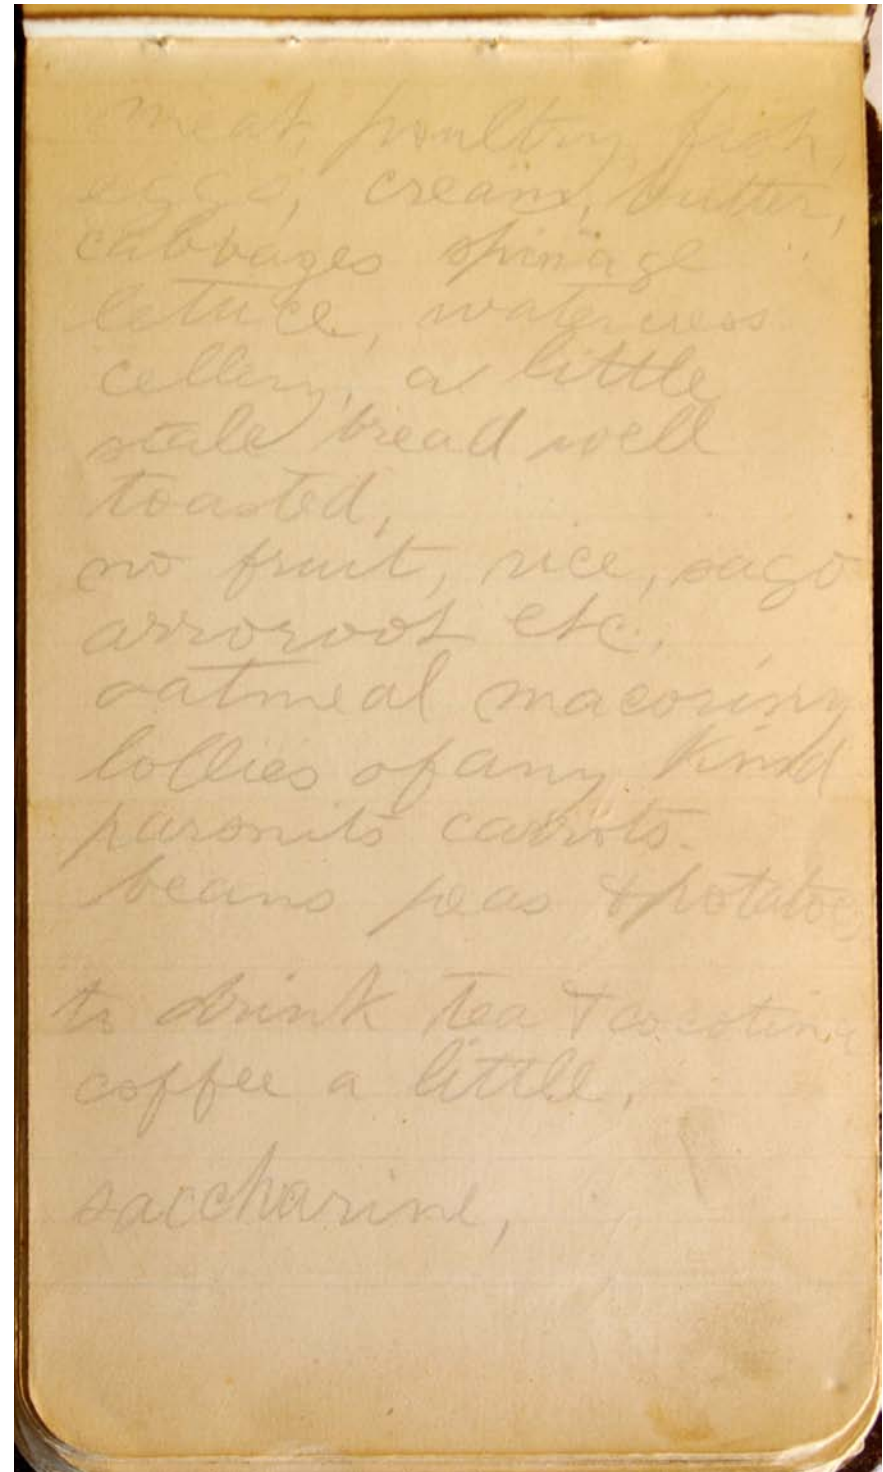 meat, poultry, fish,
eggs, cream, butter,
cabbages spinage
letuce, watercress
cellery, a little
stale bread well
toasted,
no fruit, rice, sago
arroroot etc.
oatmeal macoriny
lollies of any kind
parsnits carrots.
beans peas & potatoes
to drink tea &
coffee a little,
saccharine,